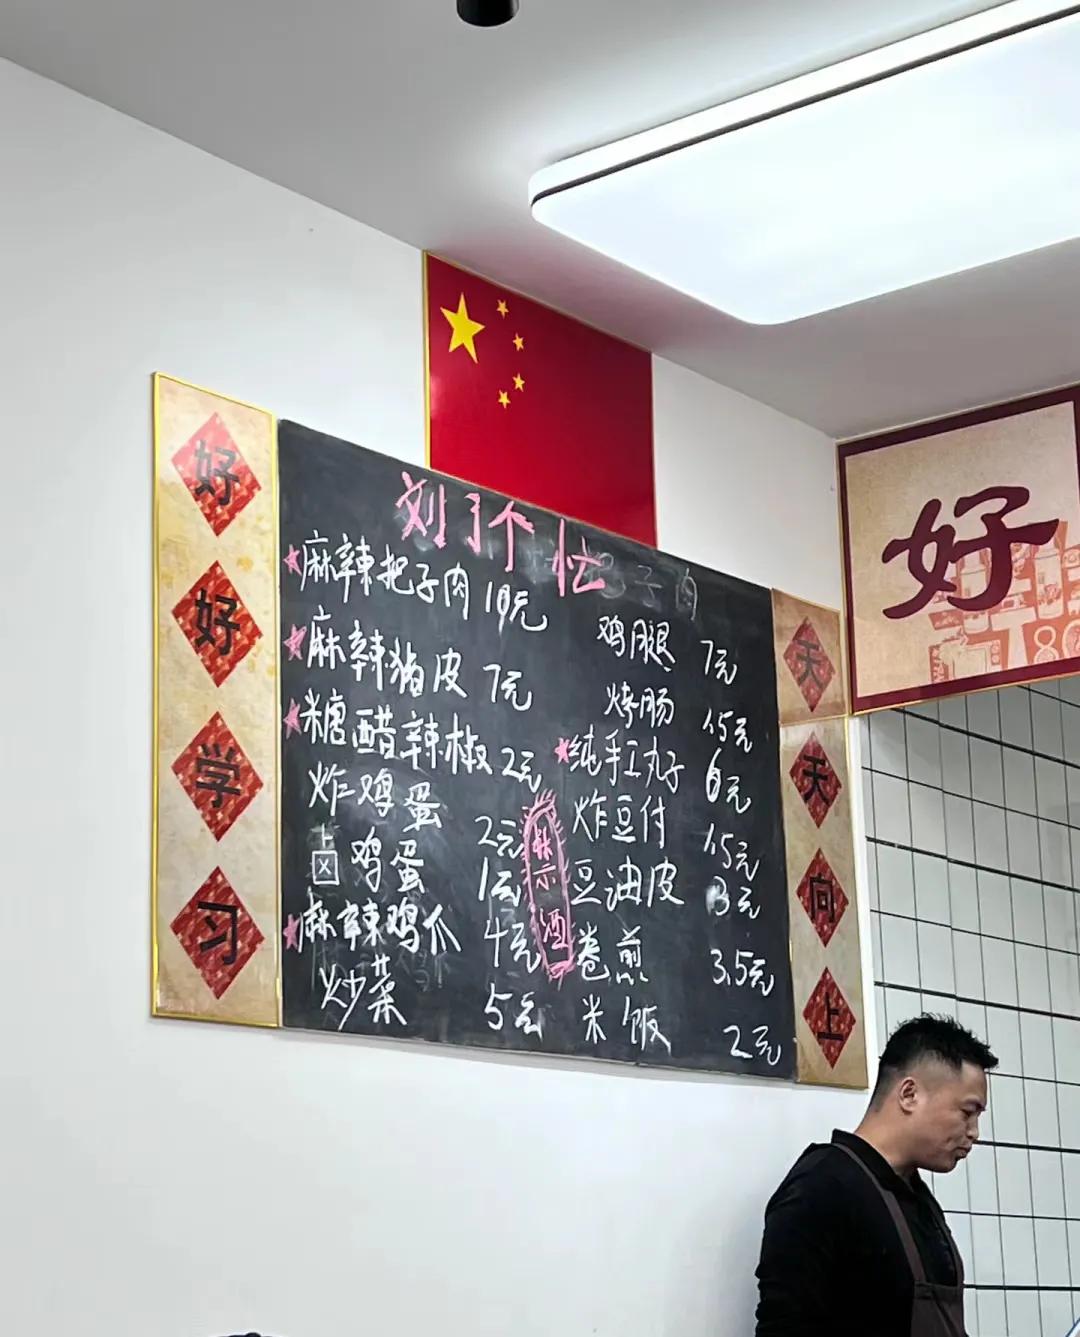 好好学习
刘了个忙
麻辣把子肉 10元
麻辣猪皮 7元
糖醋辣椒 2元
炸鸡蛋 2元
卤鸡蛋 1元
麻辣鸡爪 4元
炒菜 5元
禁示酒
子肉
鸡腿 7元
烤肠 1.5元
纯手工丸子 6元
炸豆付 1.5元
豆油皮 3元
卷煎 3.5元
米饭 2元
天天向上
好